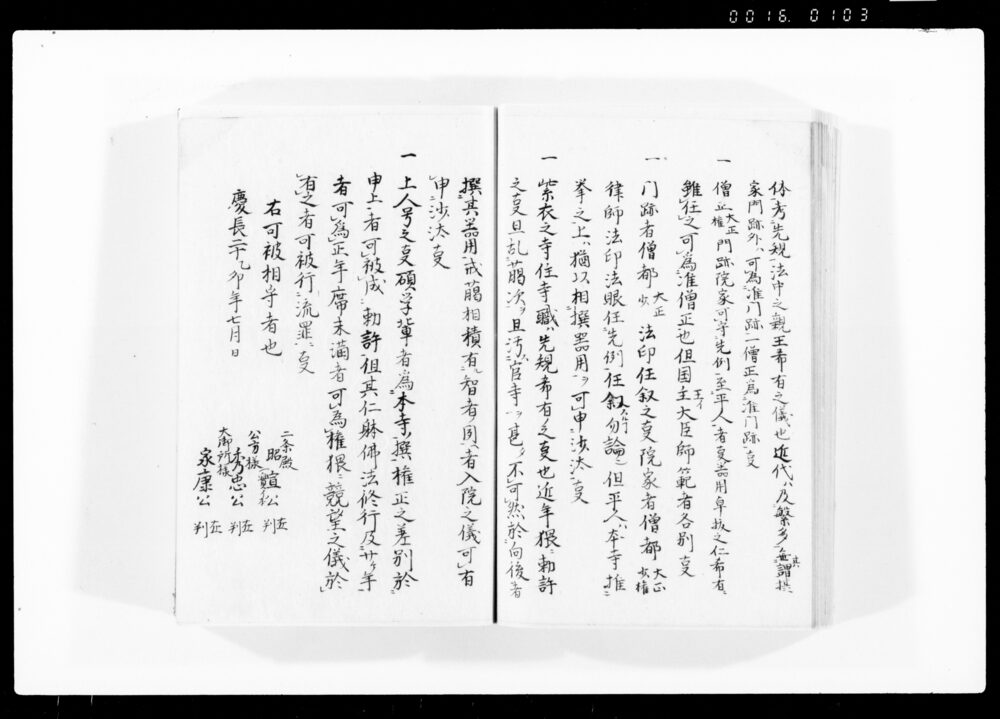 0016. 0103
体考先規法中之親王希有之儀也近代ハ及繁多無其謂摂
家門跡外ハ可為准門跡一僧正為准門跡夏
一僧正大正権門跡院家可守先例至平人者夏器用卓抜之仁希有
雖任之可為准僧正也但国王イ主大臣師範者各別夏
一門跡者僧都大正少法印任叙之夏院家者僧都大正少権
律師法印法眼任先例任叙勿論但平人ハ本寺推
挙之上ハ猶以相撰器用ヲ可申沙汰夏
一紫衣之寺住寺職先規希有之夏也近年猥ニ勅許
之夏且乱﨟次ヲ且汚官寺ヲ甚不可然於向後者
撰其器用戒﨟相積有智者聞者入院之儀可有
申沙汰夏
一上人号之夏碩学輩者為本寺撰権正之差別於
申上者可被成勅許但其仁躰佛法修行及廿ヶ年
者可為正年席未満者可為権猥ニ競望之儀於
有之者可被行流罪夏
右可被相守者也
慶長二十乙卯年七月日
二条殿
昭實公 在判
公方様
秀忠公 在判
大御所様
家康公 在判